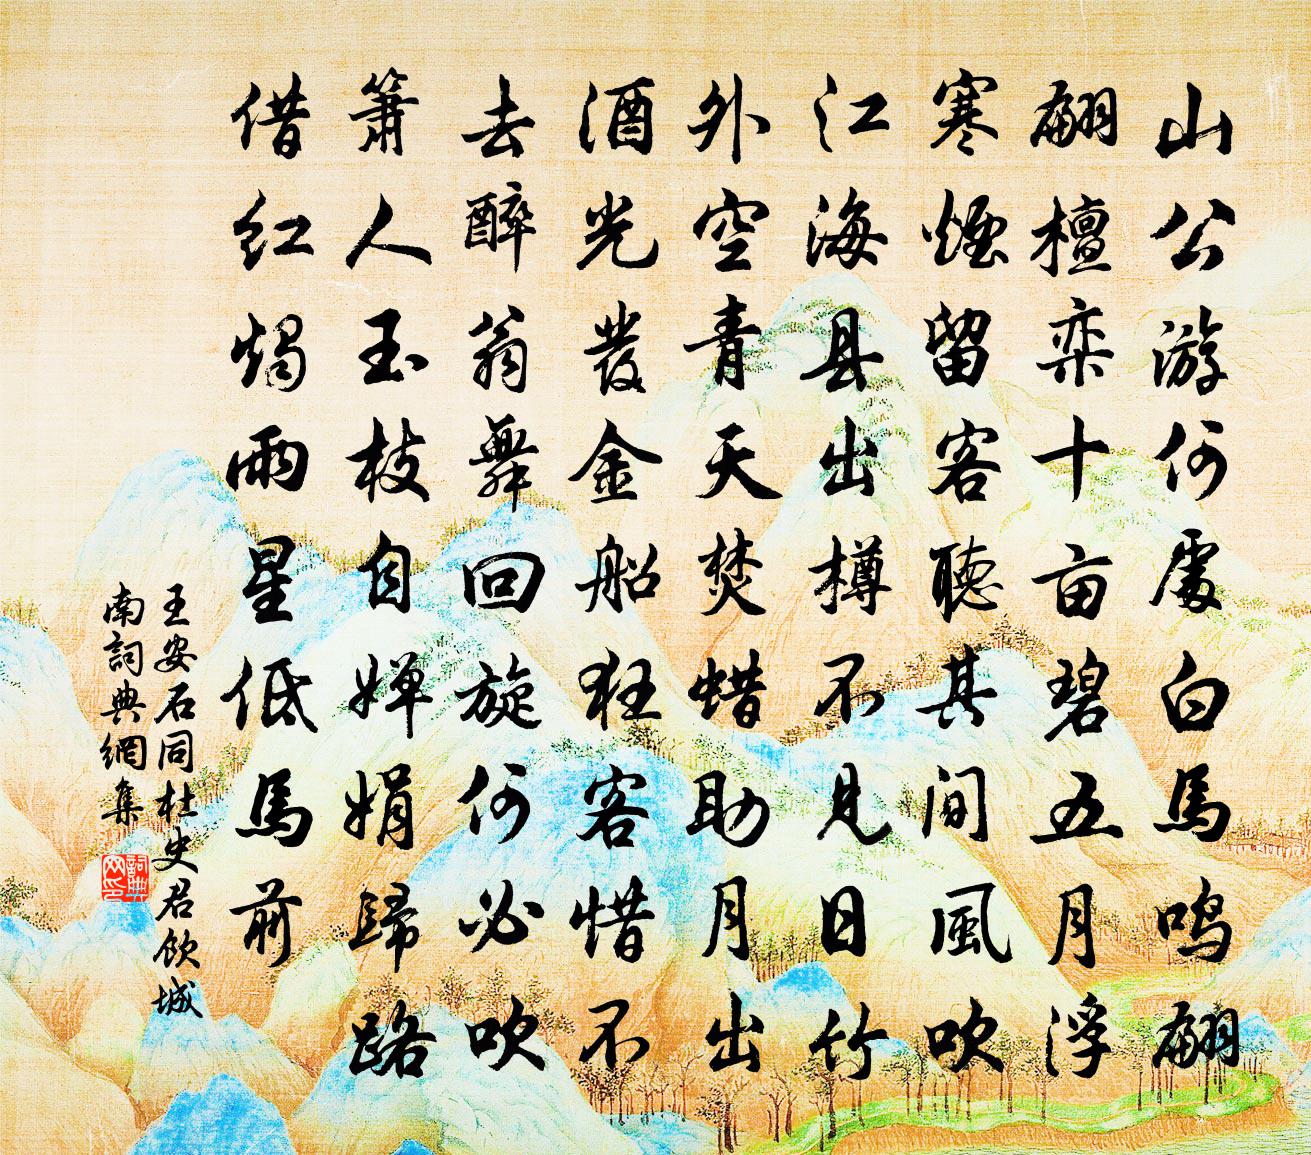 山公游何處白馬鳴翩
翩檀栾十亩碧五月浮
寒煙留客聽其間風吹
江海县出樽不見日竹
外空青天焚蜡助月出
酒光發金船狂客惜不
去醉翁舞回旋何必吹
簫人玉枝自嬋娟歸路
借紅燭雨星低馬前
王安石同杜史君飲城
南詞典網集
詞典
网印